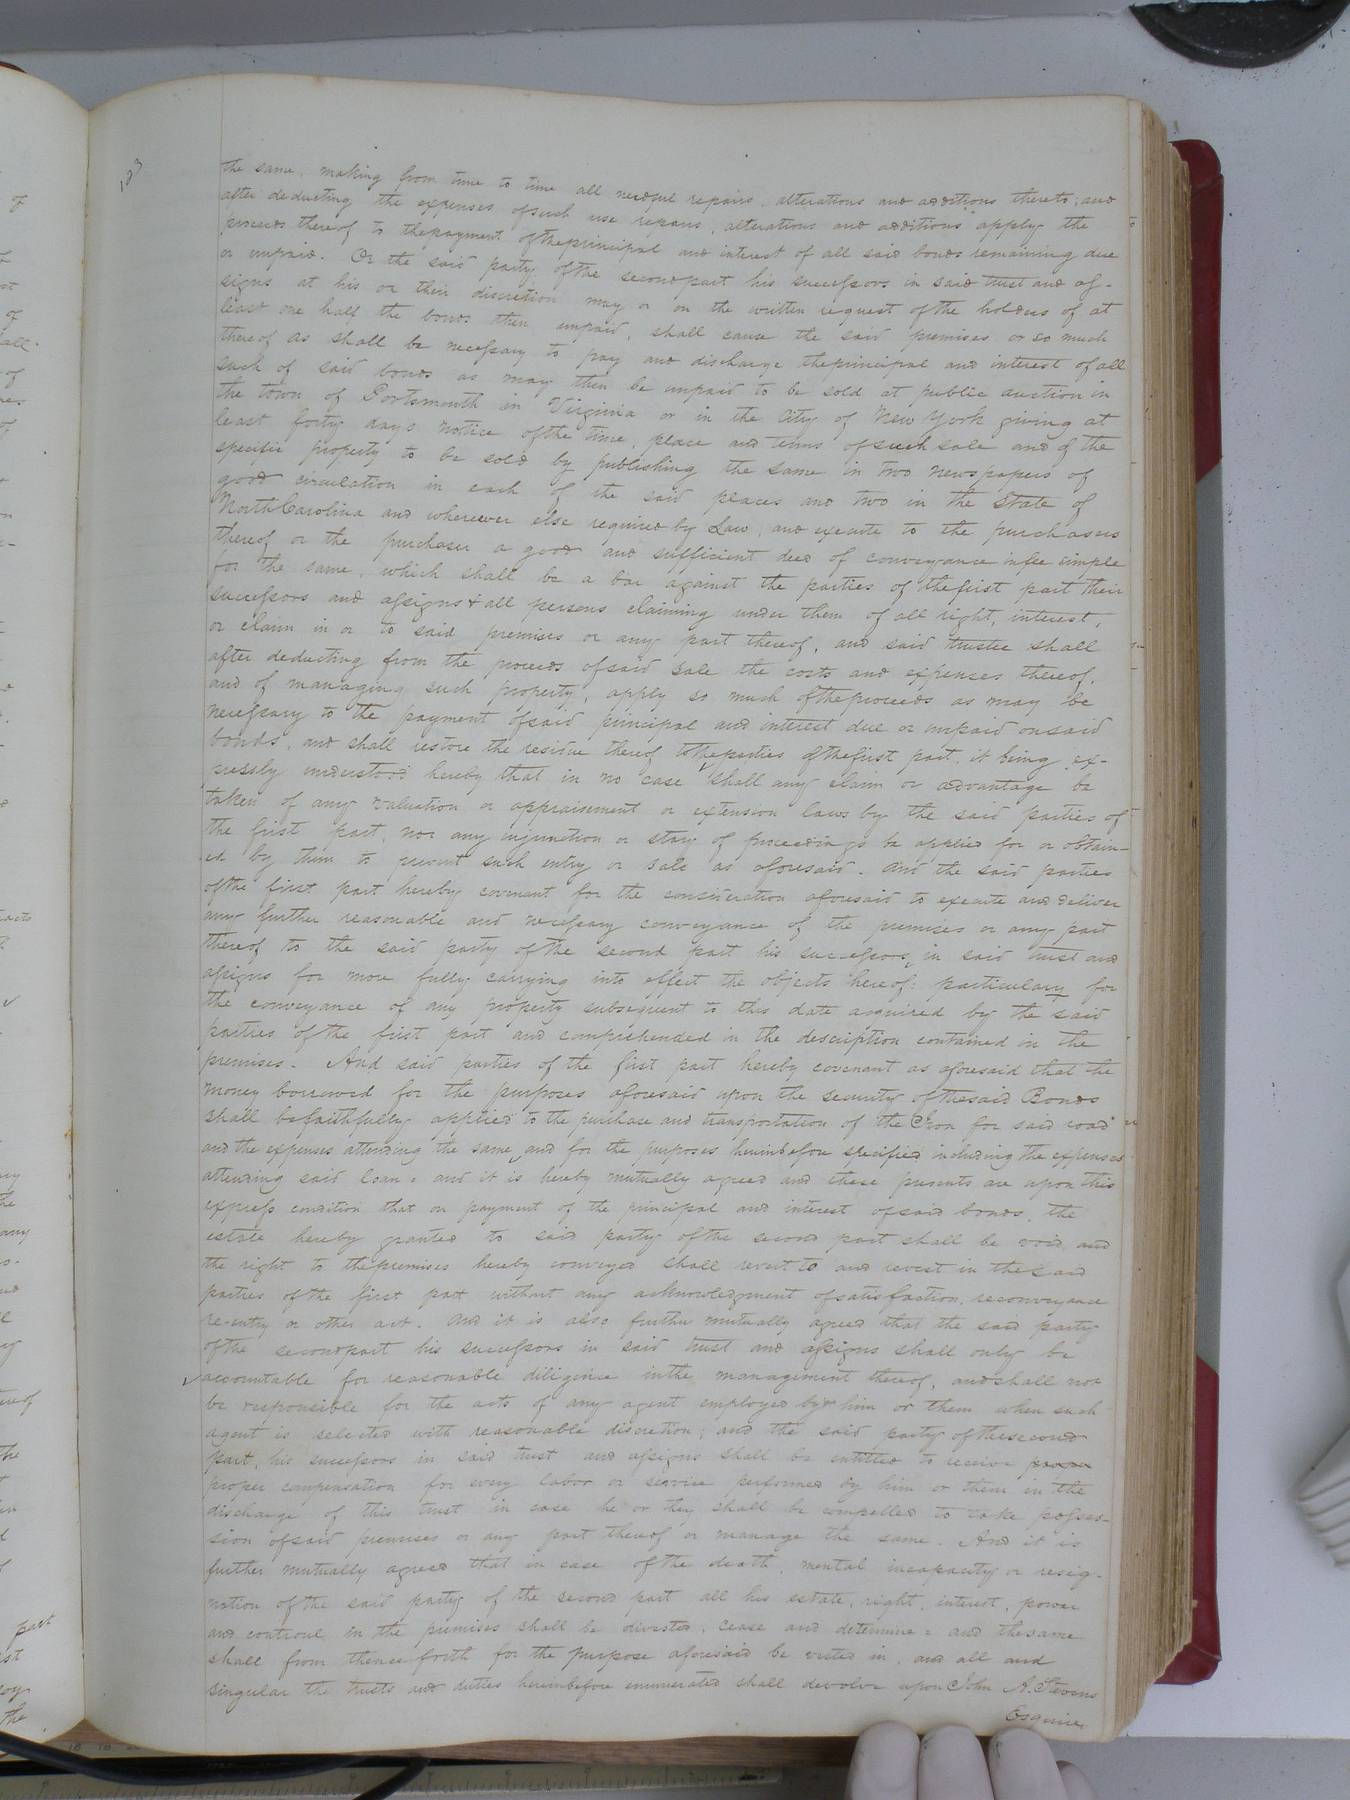 183
the same, making from time to time all needful repairs, alterations and additions thereto; and
after deducting the expenses of such use repairs, alterations and additions apply the
proceeds thereof to the payment of the principal and interest of all said bonds remaining due
or unpaid. Or the said party of the second part his successors in said trust and as-
signs at his or their discretion may or on the written request of the holders of at
least one half the bonds then unpaid, shall cause the said premises or so much
thereof as shall be necessary to pay and discharge the principal and interest of all
such of said bonds as may then be unpaid to be sold at public auction in
the town of Portsmouth in Virginia or in the City of New York giving at
least forty days notice of the time, place and terms of such sale and of the
specific property to be sold by publishing the same in two newspapers of
good circulation in each of the said places and two in the State of
North Carolina and wherever else required by Law, and execute to the purchasers
thereof or the purchaser a good and sufficient deed of conveyance in fee simple
for the same, which shall be a bar against the parties of the first part their
successors and assigns & all persons claiming under them of all right, interest,
or claim in or to said premises or any part thereof, and said trustee shall
after deducting from the proceeds of said sale the costs and expenses thereof,
and of managing such property, apply so much of the proceeds as may be
necessary to the payment of said principal and interest due or unpaid on said
bonds, and shall restore the residue thereof to the parties of the first part, it being ex-
pressly understood hereby that in no case shall any claim or advantage be
taken of any valuation or appraisement or extension laws by the said parties of
the first part, nor any injunction or stay of proceedings be applied for or obtain-
ed by them to prevent such entry or sale as aforesaid. And the said parties
of the first part hereby covenant for the consideration aforesaid to execute and deliver
any further reasonable and necessary conveyance of the premises or any part
thereof to the said party of the second part his successors, in said trust and
assigns for more fully carrying into effect the objects hereof: particulary for
the conveyance of any property subsequent to this date acquired by the said
parties of the first part and comprehended in the description contained in the
premises. And said parties of the first part hereby covenant as aforesaid that the
money borrowed for the purposes aforesaid upon the security of the said Bonds
shall be faithfully applied to the purchase and transportation of the Iron for said road
and the expenses attending the same, and for the purposes hereinbefore specified including the expenses
attending said loan: and it is hereby mutually agreed and these presents are upon this
express condition that on payment of the principal and interest of said bonds, the
estate hereby granted to said party of the second part shall be void and
the right to the premises hereby conveyed shall revert to and revest in the said
parties of the first part without any acknowledgment of satisfaction, reconveyance
re-entry or other act. And it is also further mutually agreed that the said party
of the second part his successors in said trust and assigns shall only be
accountable for reasonable diligence in the management thereof, and shall not
be responsible for the acts of any agent employed by him or them when such
agent is selected with reasonable discretion; and the said party of the second
part, his successors in said trust and assigns shall be entitled to receive
proper compensation for every labor or service performed by him or them in the
discharge of this trust in case he or they shall be compelled to take posses-
sion of said premises or any part thereof or manage the same. And it is
further mutually agreed that in case of the death, mental incapacity or resig-
nation of the said party of the second part all his estate, right, interest, power
and controul in the premises shall be divested, cease and determine: and the same
shall from thence forth for the purpose aforesaid be vested in, and all and
singular the trusts and duties hereinbefore enumerated shall devolve upon John A. Stevens
Esquire,